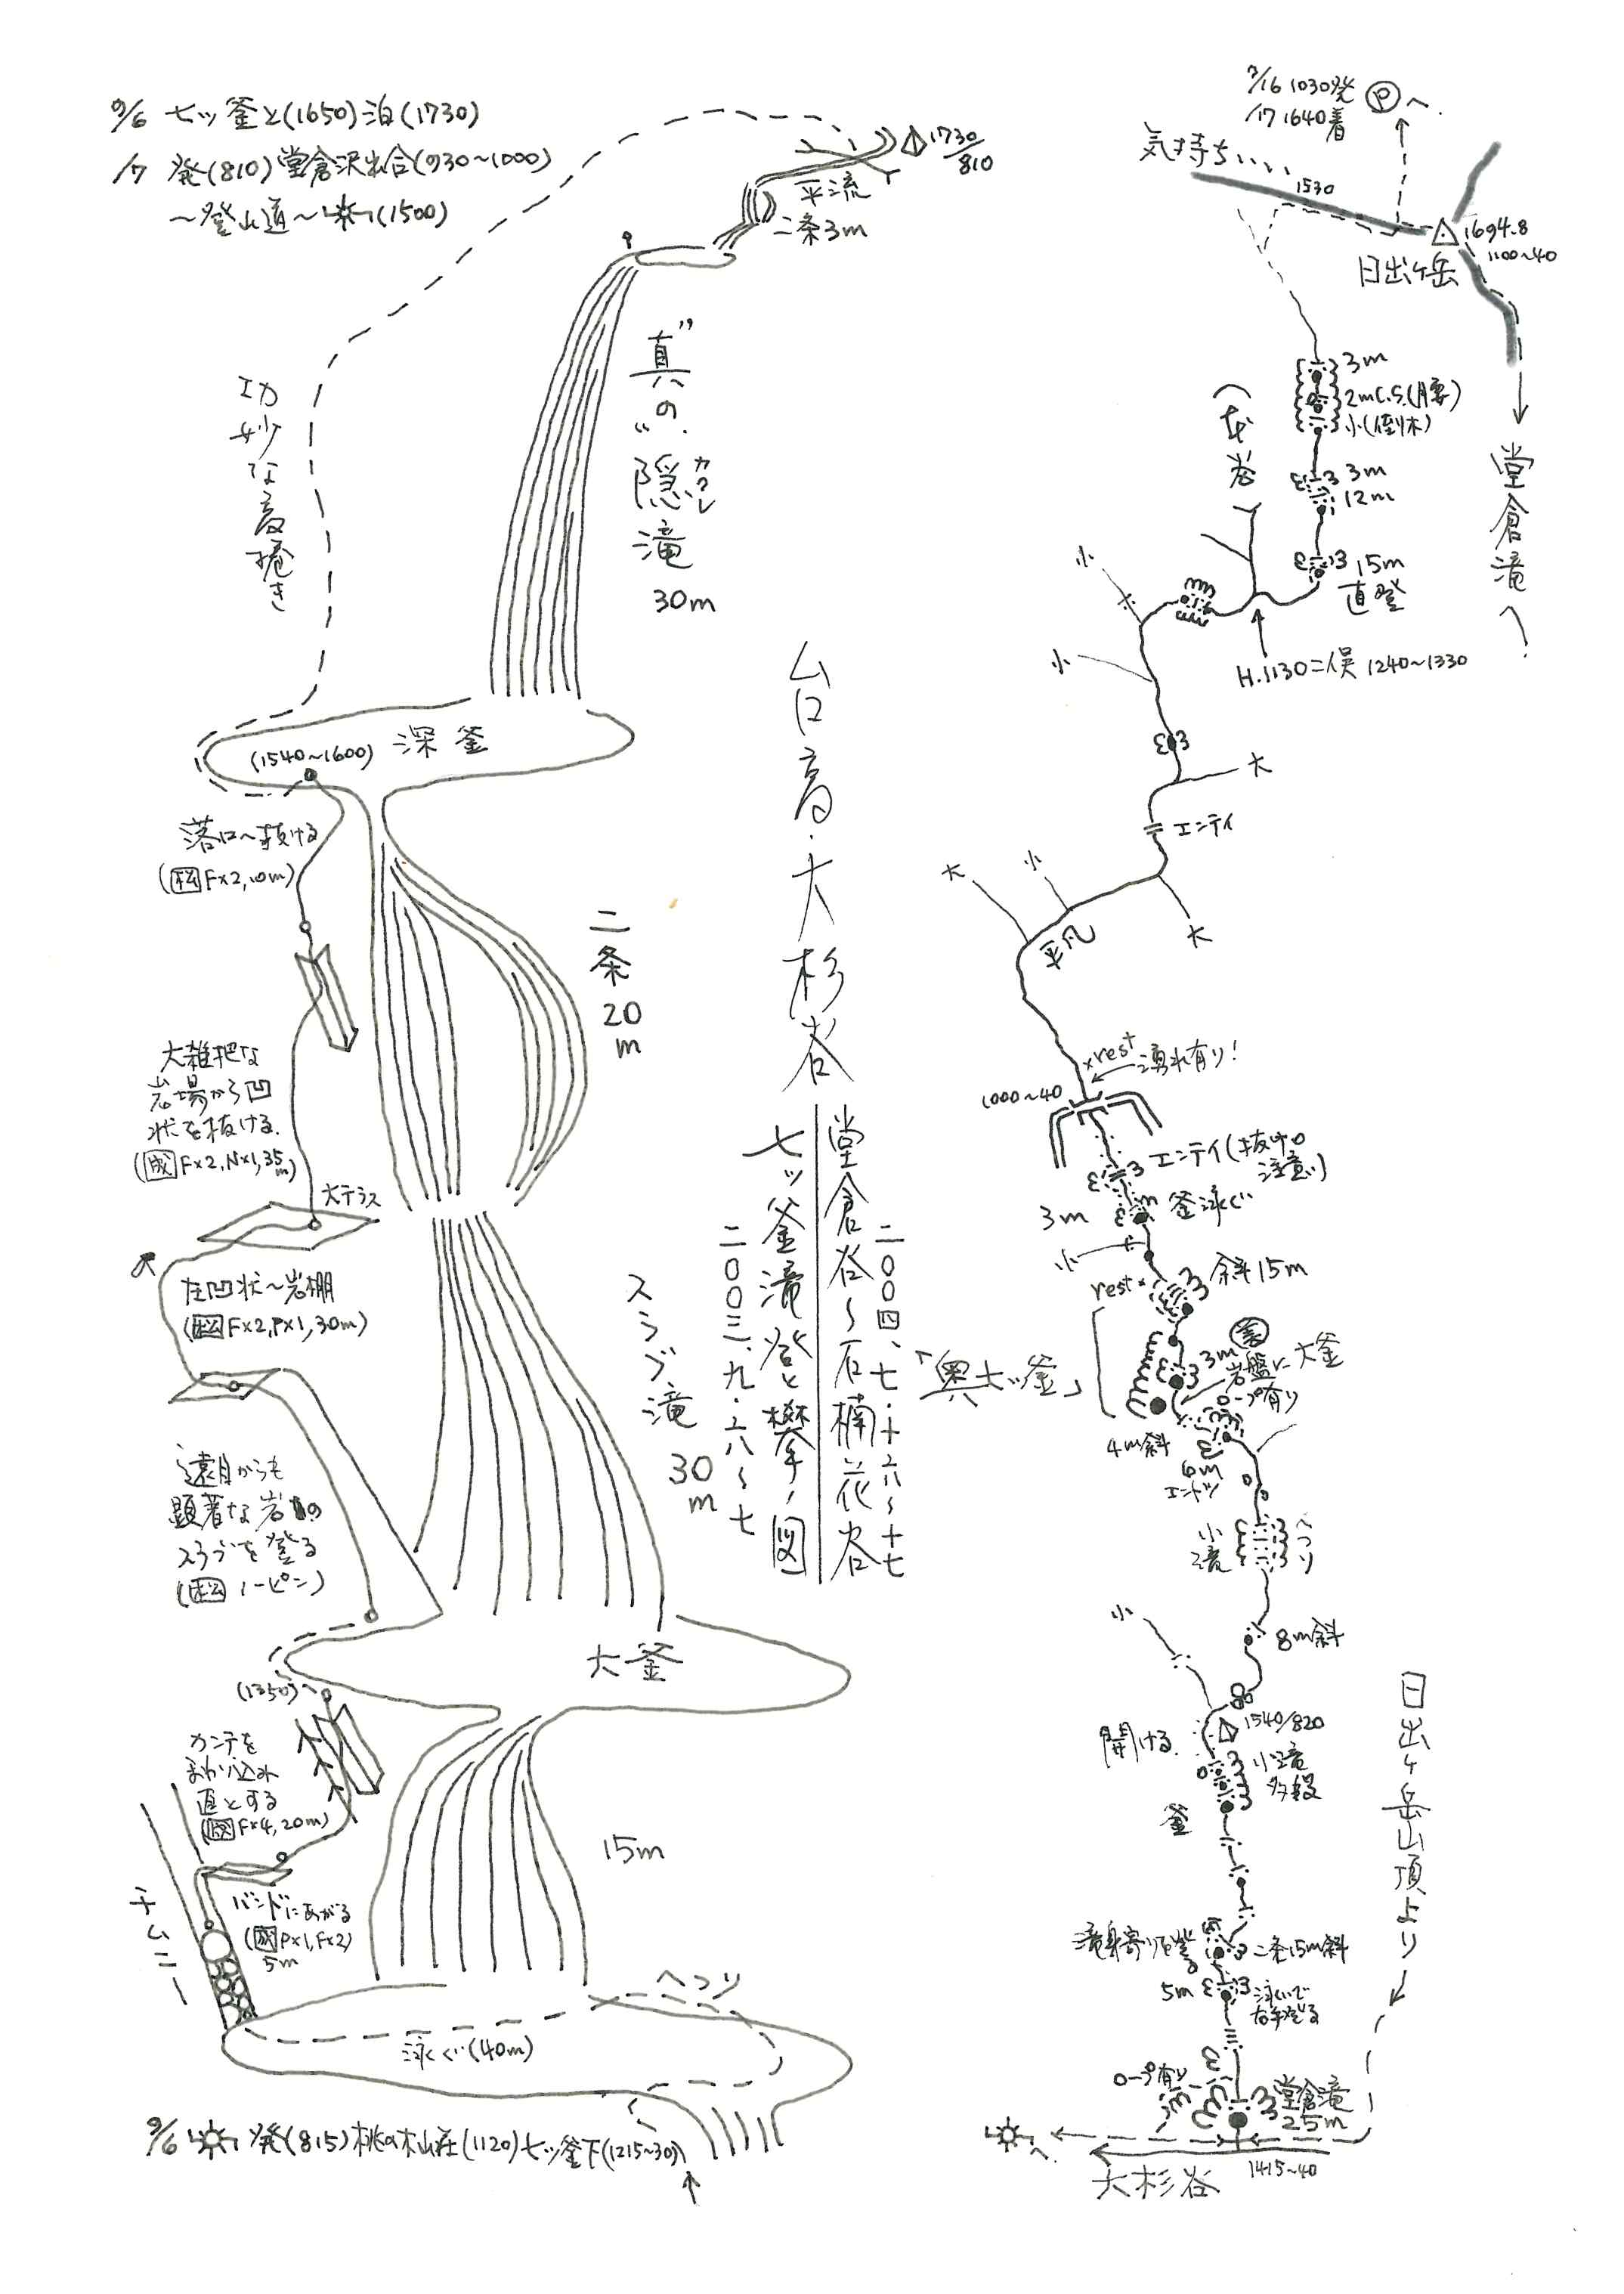 9/6 七ッ釜と(1650)泊(1730)
/7 発(810)堂倉沢出合(930~1000)
~登山道~(1500)
1730/810
平流
二条3m
功妙な高捲き
"真"の
隠滝
カクレ
30m
(1540~1600) 深釜
落口へ抜ける
(松F×2,10m)
二条
20m
大雑把な
岩場から凹
状を抜ける.
(成F×2,N×1,35m)
大テラス
左凹状~岩棚
(松F×2,P×1,30m)
スラブ滝
30m
遠目からも
顕著な岩の
スラブを登る
(松ノーピン)
大釜
(1350)
カンテを
まわり込み
直上する
(成F×4,20m)
15m
バンドにあがる
(成P×1,F×2)
5m
チムニー
へつり
泳ぐ(40m)
9/6 発(815)桃の木山荘(1120)七ッ釜下(1215~30)
台高・大杉谷
堂倉谷~石楠花谷
二〇〇四、七・十六~十七
七ッ釜滝登と攀ノ図
二〇〇三、九・六~七
7/16 1030発
/17 1640着
Ⓟへ.
気持ち、、、、
1530
1694.8
1100~40
日出ヶ岳
堂倉滝へ
3m
2mC.S.(腰)
小(倒木)
(本谷
3m
12m
15m
直登
H.1130二俣 1240~1330
小
小
大
エンテイ
大
小
大
平凡
×rest
湧れ有り!
1000~40
エンテイ(抜け口
注意!)
3m 釜泳ぐ
小
rest×
斜15m
「奥七ッ釜」
3m
岩盤に大釜
ロープ有り
4m斜
6m
エントツ
小滝
へつり
8m斜
小
開ける.
1540/820
小滝
多段
釜
滝身寄りを登る
二条15m斜
5m
泳いで
右手登る
ロープ有り
堂倉滝
25m
へ.
大杉谷
1415~40
日出ヶ岳山頂より